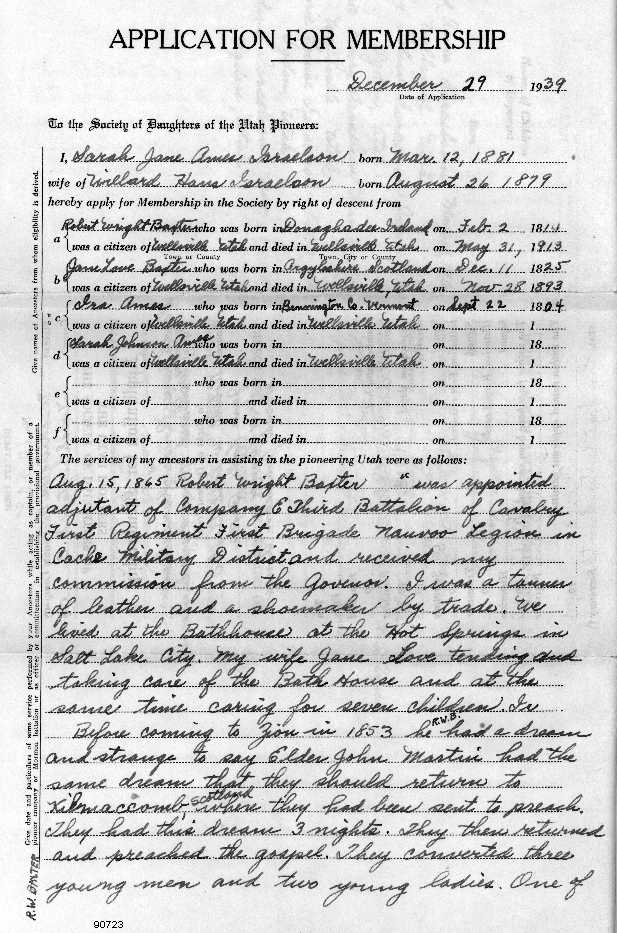 APPLICATION FOR MEMBERSHIP
December 29 1939
Date of Application
To the Society of Daughters of the Utah Pioneers:
I, Sarah Jane Ames Israelson born Mar. 12, 1881
wife of Willard Hans Israelson born August 26 1879
hereby apply for Membership in the Society by right of descent from
a Robert Wright Baxter who was born in Donaghadee Ireland on Feb. 2 1814
was a citizen of Wellsville Utah and died in Wellsville Utah on May 31, 1913
Town or County Town, City or County
b Jane Love Baxter who was born in Argyleshire Scotland on Dec. 11 1825
was a citizen of Wellsville Utah and died in Wellsville, Utah on Nov 28 1893
c Ira Ames who was born in Bennington Co. Vermont on Sept 22 1804
was a citizen of Wellsville Utah and died in Wellsville Utah on 1
d Sarah Johnson Ames who was born in on 18
was a citizen of Wellsville Utah and died in Wellsville Utah on 1
e who was born in on 18
was a citizen of and died in on 1
f who was born in on 18
was a citizen of and died in on 1
The services of my ancestors in assisting in the pioneering Utah were as follows:
Aug. 15, 1865 Robert Wright Baxter "was appointed
adjutant of Company E Third Battalion of Cavalry
First Regiment First Brigade Nauvoo Legion in
Cache Military District and received my
commission from the Govenor. I was a tanner
of leather and a shoemaker by trade. We
lived at the Bathhouse at the Hot Springs in
Salt Lake City. My wife Jane Love tending and
taking care of the Bath House and at the
same time caring for seven children. In
Before coming to Zion in 1853 he R.W.B. had a dream
and strange to say Elder John Martin had the
same dream that they should return to
Kilmaccomb, Scotland where they had been sent to preach.
They had this dream 3 nights. They then returned
and preached the gospel. They converted three
young men and two young ladies. One of
Give names of Ancestors from whom eligibility is derived.
Give date and particulars of some service performed by your Ancestors while acting as captain, or member of a
pioneer company or Mormon Battalion or as officer or committeeman in establishing the provisional government.
R.W. BAXTER
90723